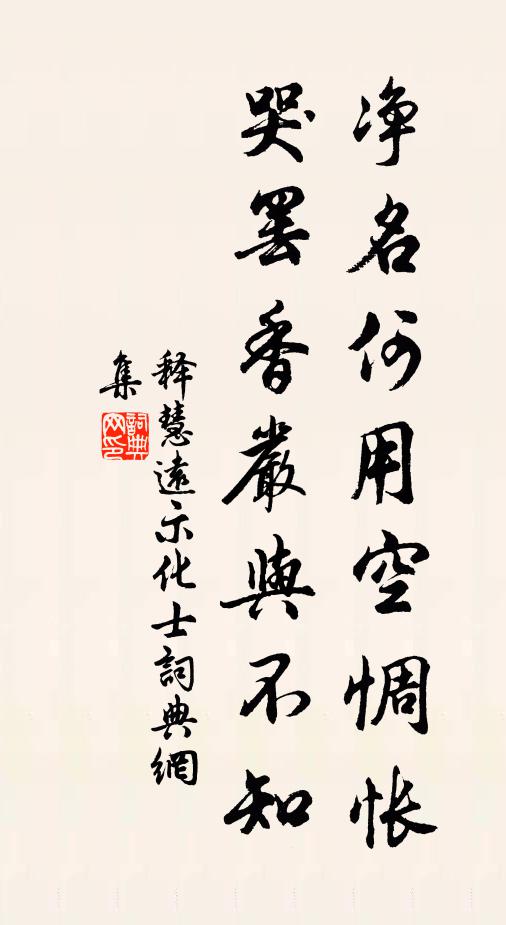 净名何用空惆怅
哭罢香嚴與不知
释慧遠示化士詞典網
集
詞典
网印